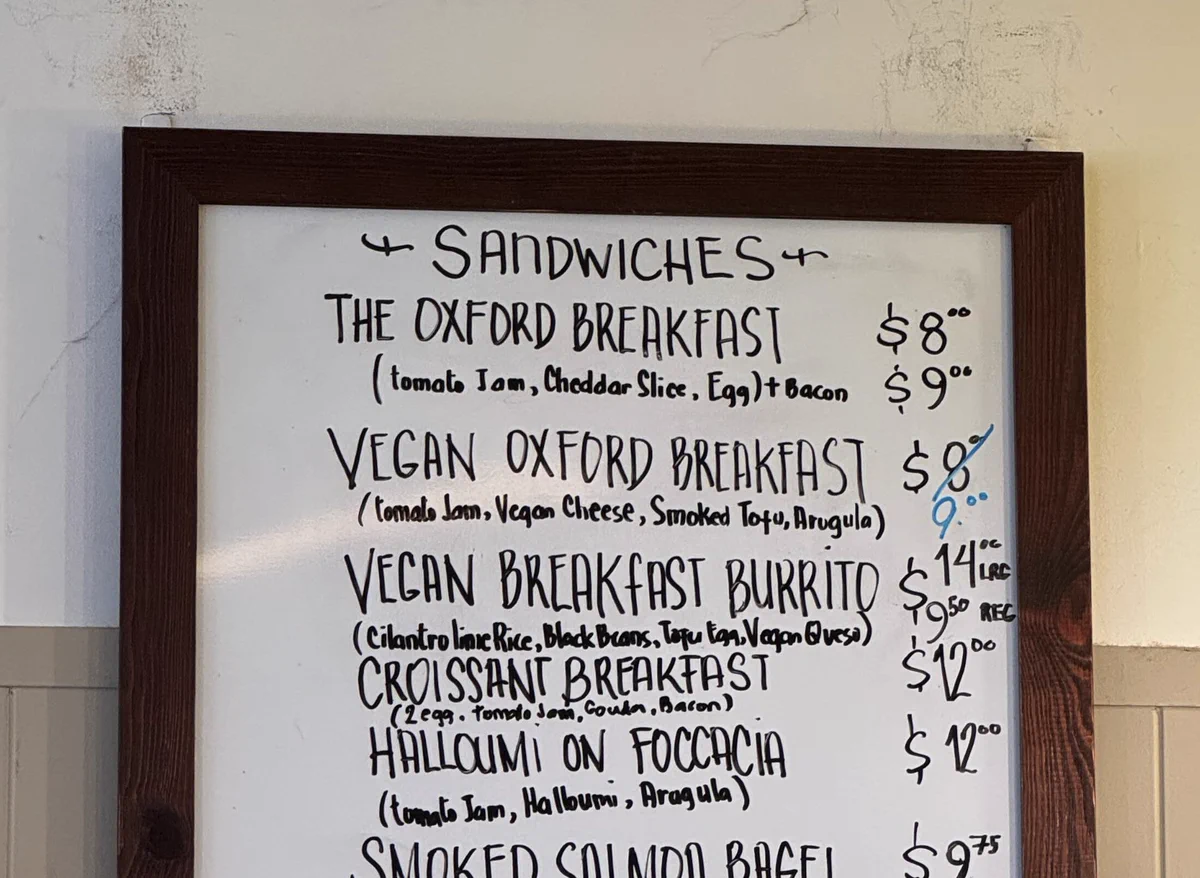 SANDWICHES
THE OXFORD BREAKFAST $8.00
(tomato Jam, Cheddar Slice, Egg) + Bacon $9.00
VEGAN OXFORD BREAKFAST $8.00
(tomato Jam, Vegan Cheese, Smoked Tofu, Arugula) 9.00
VEGAN BREAKFAST BURRITO $14.00 LRG
$9.50 REG
(Cilantro lime Rice, Black Beans, Tofu Egg, Vegan Queso)
CROISSANT BREAKFAST $12.00
(2 egg, Tomato Jam, Gouda, Bacon)
HALLOUMI ON FOCCACIA $12.00
(tomato Jam, Halloumi, Aragula)
SMOKED SALMON BAGEL $9.75